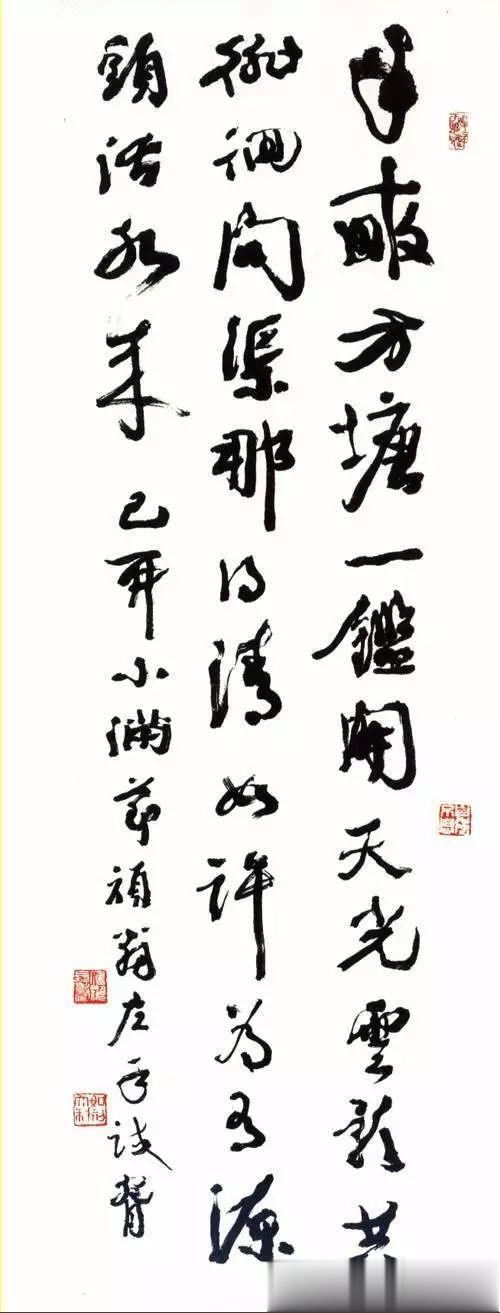 半畝方塘一鑑開天光雲影共
徘徊問渠那得清如許為有源
頭活水來 己小滿節頑翁左手